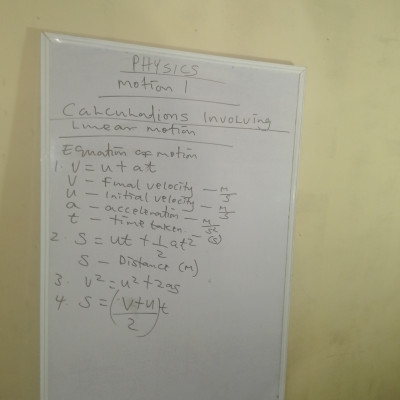 PHYSICS
Motion 1
Calculations Involving
Linear motion
Equation of motion
1. V = u + at
V – Final velocity – m/s
u – Initial velocity – m/s
a – acceleration – m/s²
t – time taken – (s)
2. S = ut + 1/2 at²
S – Distance (m)
3. V² = u² + 2as
4. S = (V+u/2)t